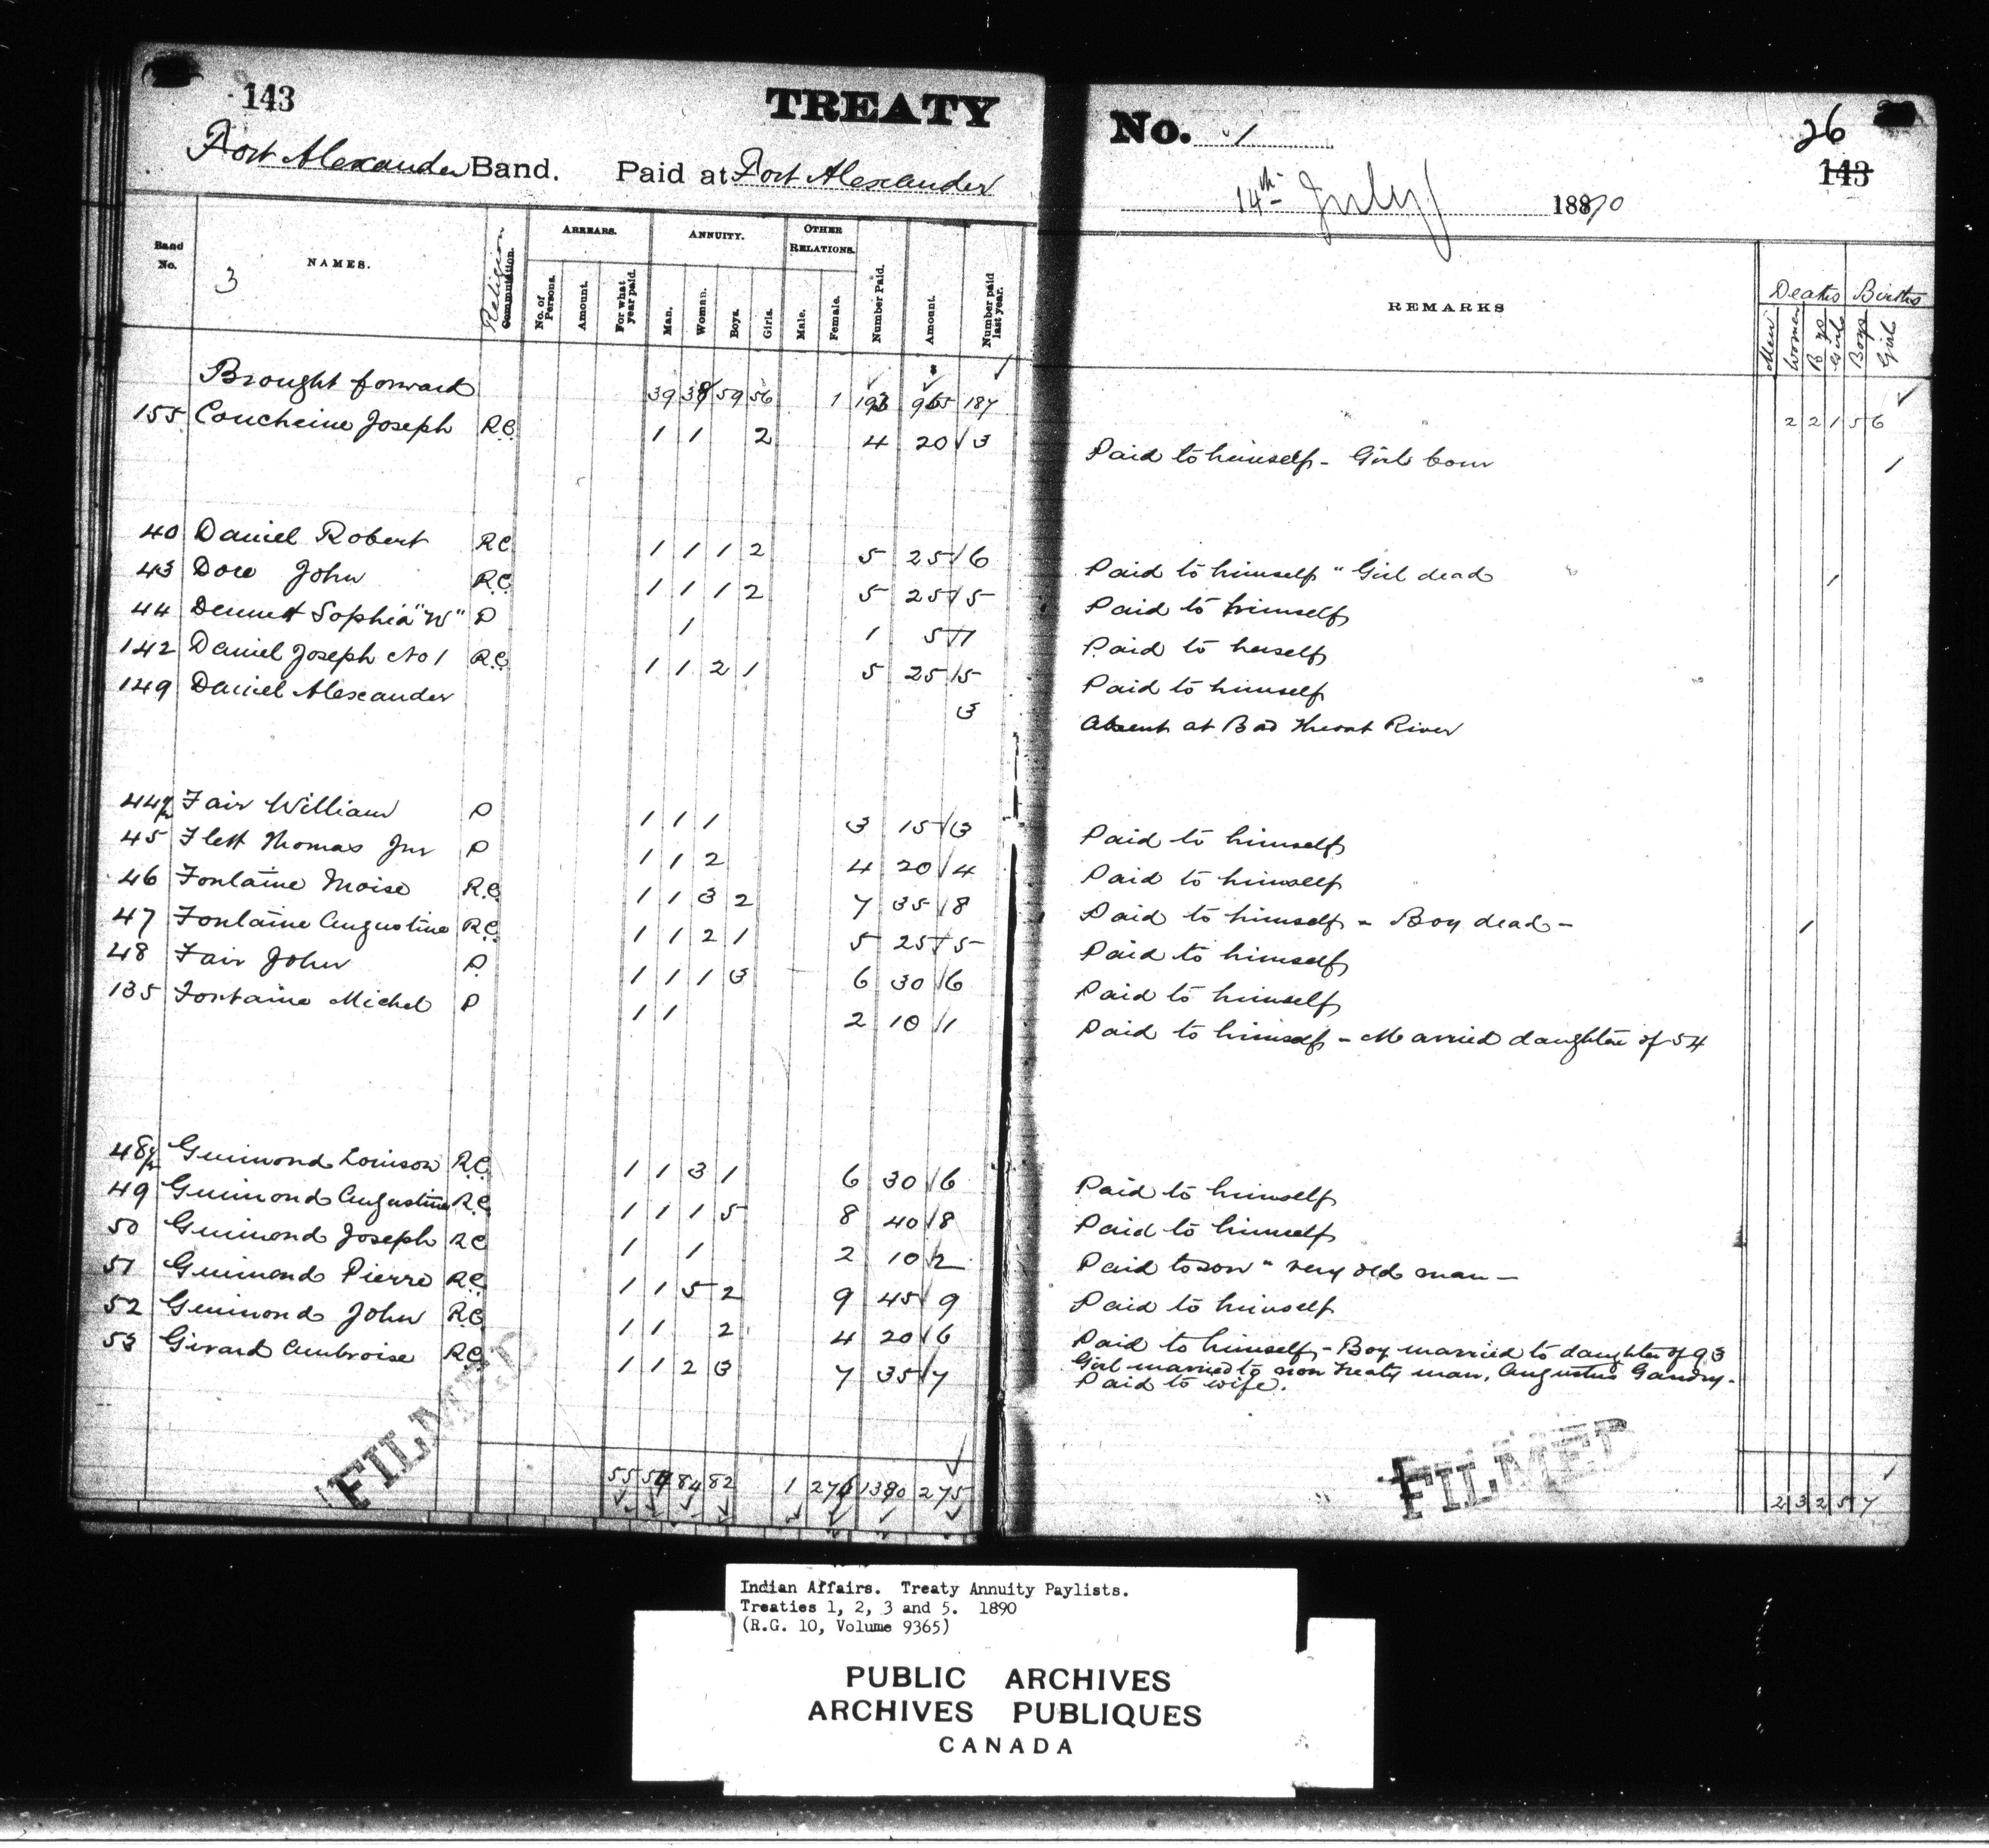 143
TREATY
Fort Alexander Band. Paid at Fort Alexander
No. 1
26
143
14th July 1890
Band No.
NAMES.
3
Religion
Commutation.
ARREARS.
No. of Persons.
Amount.
For what year paid.
ANNUITY.
Man.
Woman.
Boys.
Girls.
OTHER RELATIONS.
Male.
Female.
Number Paid.
Amount.
Number paid last year.
REMARKS
Deaths Births
Men Women Boys Girls Boys Girls
Brought forward 39 38 59 56 1 193 965 187 2 2 1 5 6
155 Coucheine Joseph R.C. 1 1 2 4 20 3 Paid to himself - Girl born 1
40 Daniel Robert RC 1 1 1 2 5 25 6 Paid to himself " Girl dead 1
43 Dow John R.C. 1 1 1 2 5 25 5 Paid to himself
44 Dennett Sophia "W" P 1 1 5 1 Paid to herself
142 Daniel Joseph No 1 R.C. 1 1 2 1 5 25 5 Paid to himself
149 Daniel Alexander 3 Absent at Bad Throat River
44½ Fair William P 1 1 1 3 15 3 Paid to himself
45 Flett Thomas Jnr P 1 1 2 4 20 4 Paid to himself
46 Fontaine Moise R.C. 1 1 3 2 7 35 8 Paid to himself - Boy dead - 1
47 Fontaine Augustine R.C. 1 1 2 1 5 25 5 Paid to himself
48 Fair John P 1 1 1 3 6 30 6 Paid to himself
135 Fontaine Michel P 1 1 2 10 1 Paid to himself - Married daughter of 54
48½ Guimond Louison R.C. 1 1 3 1 6 30 6 Paid to himself
49 Guimond Augustine R.C. 1 1 1 5 8 40 8 Paid to himself
50 Guimond Joseph RC 1 1 2 10 2 Paid to son " very old man -
51 Guimond Pierre R.C. 1 1 5 2 9 45 9 Paid to himself
52 Guimond John R.C. 1 1 2 4 20 6 Paid to himself - Boy married to daughter of 93
Girl married to non Treaty man, Augustus Gandry.
53 Girard Ambroise R.C. 1 1 2 3 7 35 7 Paid to wife.
55 54 84 82 1 276 1380 275 2 3 2 5 7
FILMED
FILMED
Indian Affairs. Treaty Annuity Paylists.
Treaties 1, 2, 3 and 5. 1890
(R.G. 10, Volume 9365)
PUBLIC ARCHIVES
ARCHIVES PUBLIQUES
CANADA